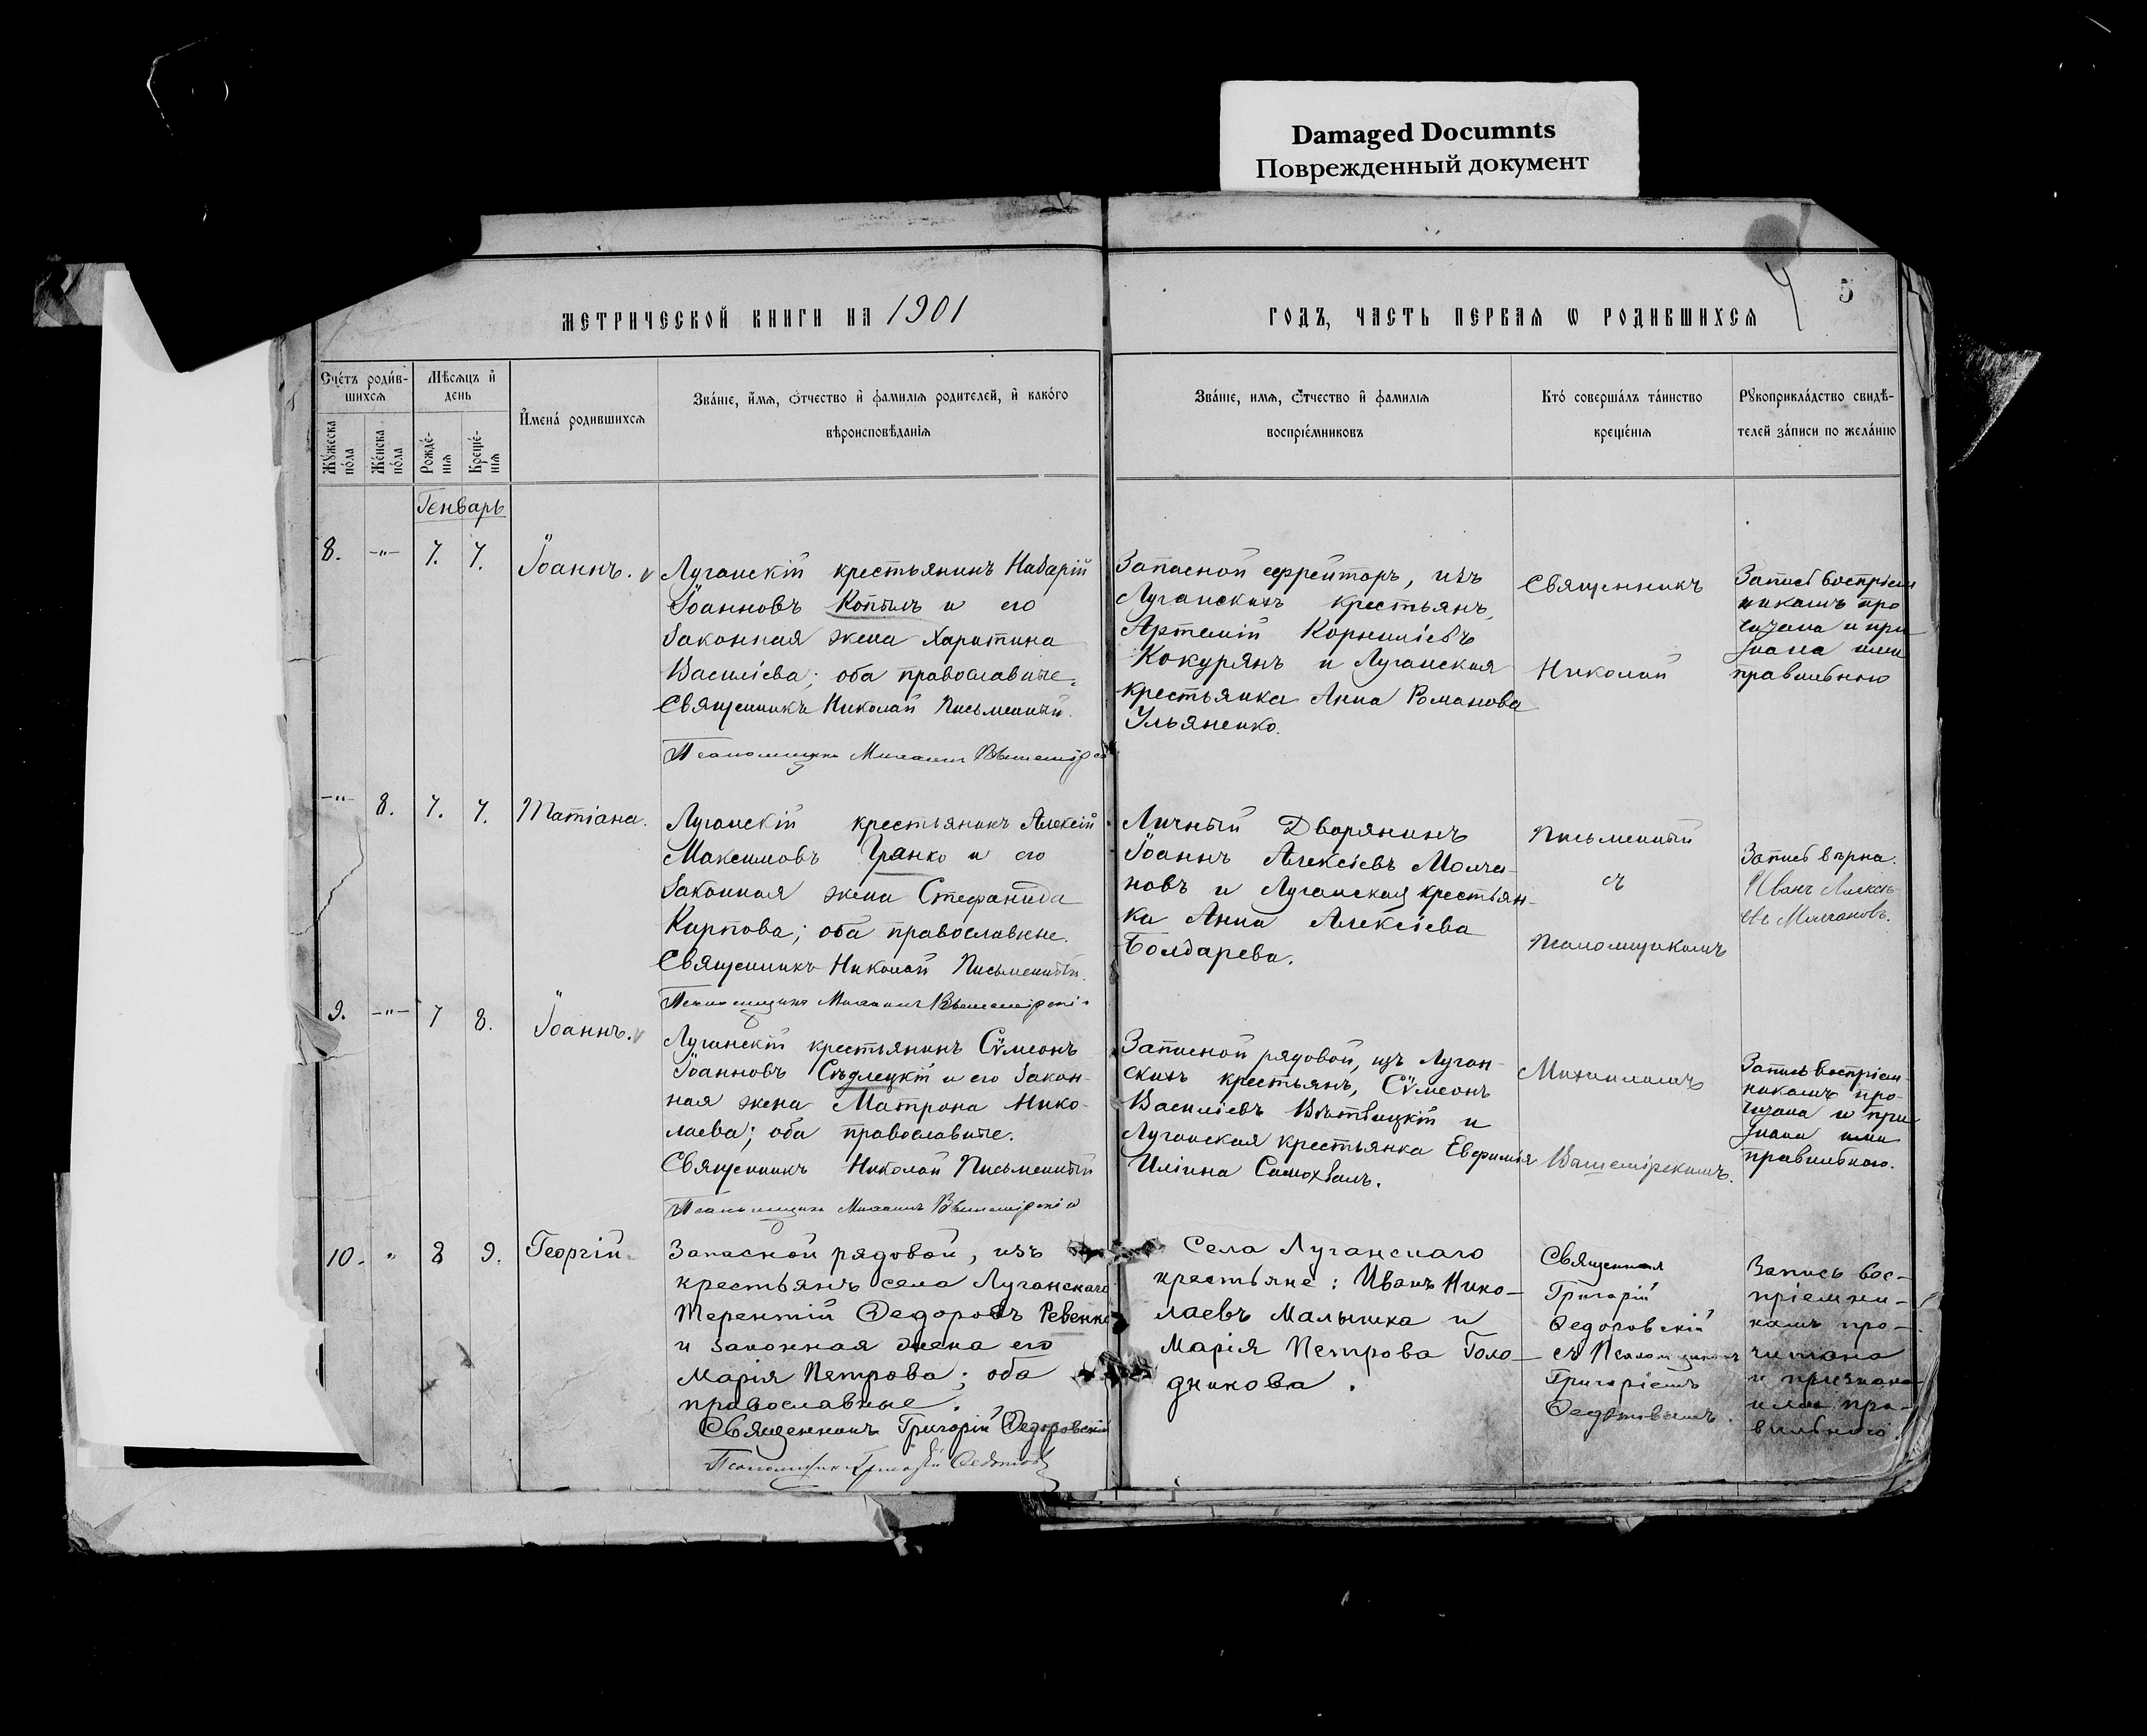 Damaged Documnts
Поврежденный документ
5
МЕТРИЧЕСКОЙ КНИГИ НА 1901
ГОДЪ, ЧАСТЬ ПЕРВАЯ Ѡ РОДИВШИХСЯ
Счетъ родив-
шихся
Мѣсяцъ и
день
Мужеска
пола
Женска
пола
Рожде-
нія
Креще-
нія
Имена родившихся
Званіе, имя, отчество и фамилія родителей, и какого
вѣроисповѣданія
Званіе, имя, отчество и фамилія
воспріемниковъ
Кто совершалъ таинство
крещенія
Рукоприкладство свидѣ-
телей записи по желанію
Генварь
8. -"- 7. 7. Іоаннъ.
Луганскій крестьянинъ Назарій
Іоанновъ Копылъ и его
законная жена Харитина
Василіева; оба православные.
Священникъ Николай Письменный.
Псаломщикъ Михаилъ
Запасной ефрейторъ, изъ
Луганскихъ крестьянъ,
Артемій Корниліевъ
Кокурянъ и Луганская
крестьянка Анна Романова
Ульяненко.
Священникъ
Николай
Запись воспріем
никамъ про
читана и при
знана ими
правильною
-"- 8. 7. 7. Татіана.
Луганскій крестьянинъ Алексій
Максимовъ Грянко и его
законная жена Стефанида
Карпова; оба православные.
Священникъ Николай Письменный.
Псаломщикъ Михаилъ Вышемірскій
Личный Дворянинъ
Іоаннъ Алексіевъ Молча-
новъ и Луганская крестьян-
ка Анна Алексіева
Болдарева.
Письменный
съ
псаломщикомъ
Запись вѣрна.
Иванъ Алексѣ-
евъ Молчановъ.
9. -"- 7 8. Іоаннъ.
Луганскій крестьянинъ Сѵмеонъ
Іоанновъ Сѣдлецкій и его закон-
ная жена Матрона Нико-
лаева; оба православные.
Священникъ Николай Письменный
Псаломщикъ Михаилъ Вышемірскій
Запасной рядовой, изъ Луган-
скихъ крестьянъ, Сѵмеонъ
Василіевъ Вѣтвицкій и
Луганская крестьянка Евфимія
Иліина Самохвалъ.
Михаиломъ
Вышемірскимъ.
Запись воспріем-
никамъ про-
читана и при
знана ими
правильною.
10. " 8 9. Георгій
Запасной рядовой, изъ
крестьянъ села Луганскаго
Терентій Федоровъ Ревенко
и законная жена его
Марія Петрова; оба
православные.
Священникъ Григорій Федоровскій
Псаломщикъ Григорій Федотовъ
Села Луганскаго
крестьяне: Иванъ Нико-
лаевъ Малышка и
Марія Петрова Голо-
дникова.
Священникъ
Григорій
Федоровскій
съ Псаломщикомъ
Григоріемъ
Федотовымъ.
Запись вос-
пріемни-
камъ про-
читана
и признана
ими пра-
вильною.